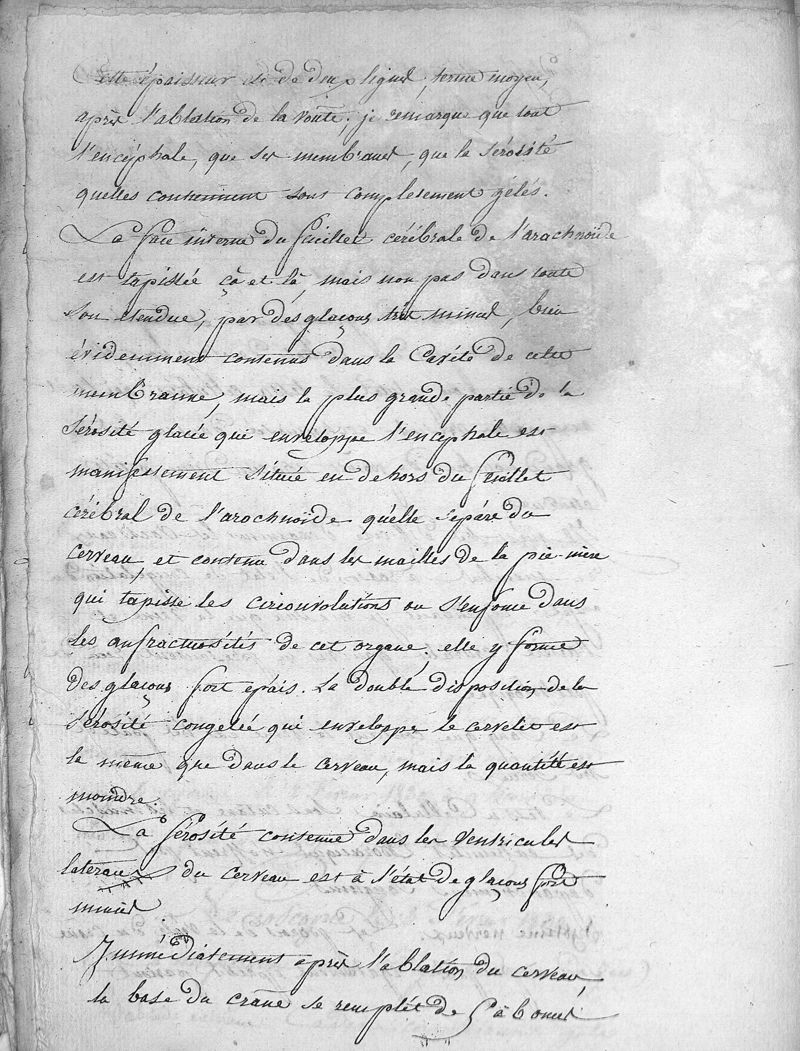 Cette épaisseur est de deux lignes, terme moyen,
après l'ablation de la voute, je remarque que tout
l'encéphale, que ses membranes, que la sérosité
quelles contiennent sont complettement gélés.
La face interne du feuillet cérébrale de l'arachnoïde
est tapissée çà et là, mais non pas dans toute
son etendue, par des glaçons très minces, bien
évidemment contenus dans la Cavité de cette
membranne, mais la plus grande partie de la
sérosité glacée qui enveloppe l'encephale est
manifestement située en dehors du feuillet
cérébral de l'arochnoïde quelle sépare du
cerveau, et contenue dans les mailles de la pie-mère
qui tapisse les circonvolutions ou s'enfonce dans
les anfractuosités de cet organe; elle y forme
des glaçons fort epais. La double disposition de la
sérosité congelée qui enveloppe le cervelet est
la même que dans le cerveau, mais la quantité est
moindre.
La sérosité contenue dans les ventricules
lateraux du cerveau est à l'état de glaçons fort
minces.
Immédiatement après l'ablation du cerveau,
la base du crâne se remplit de